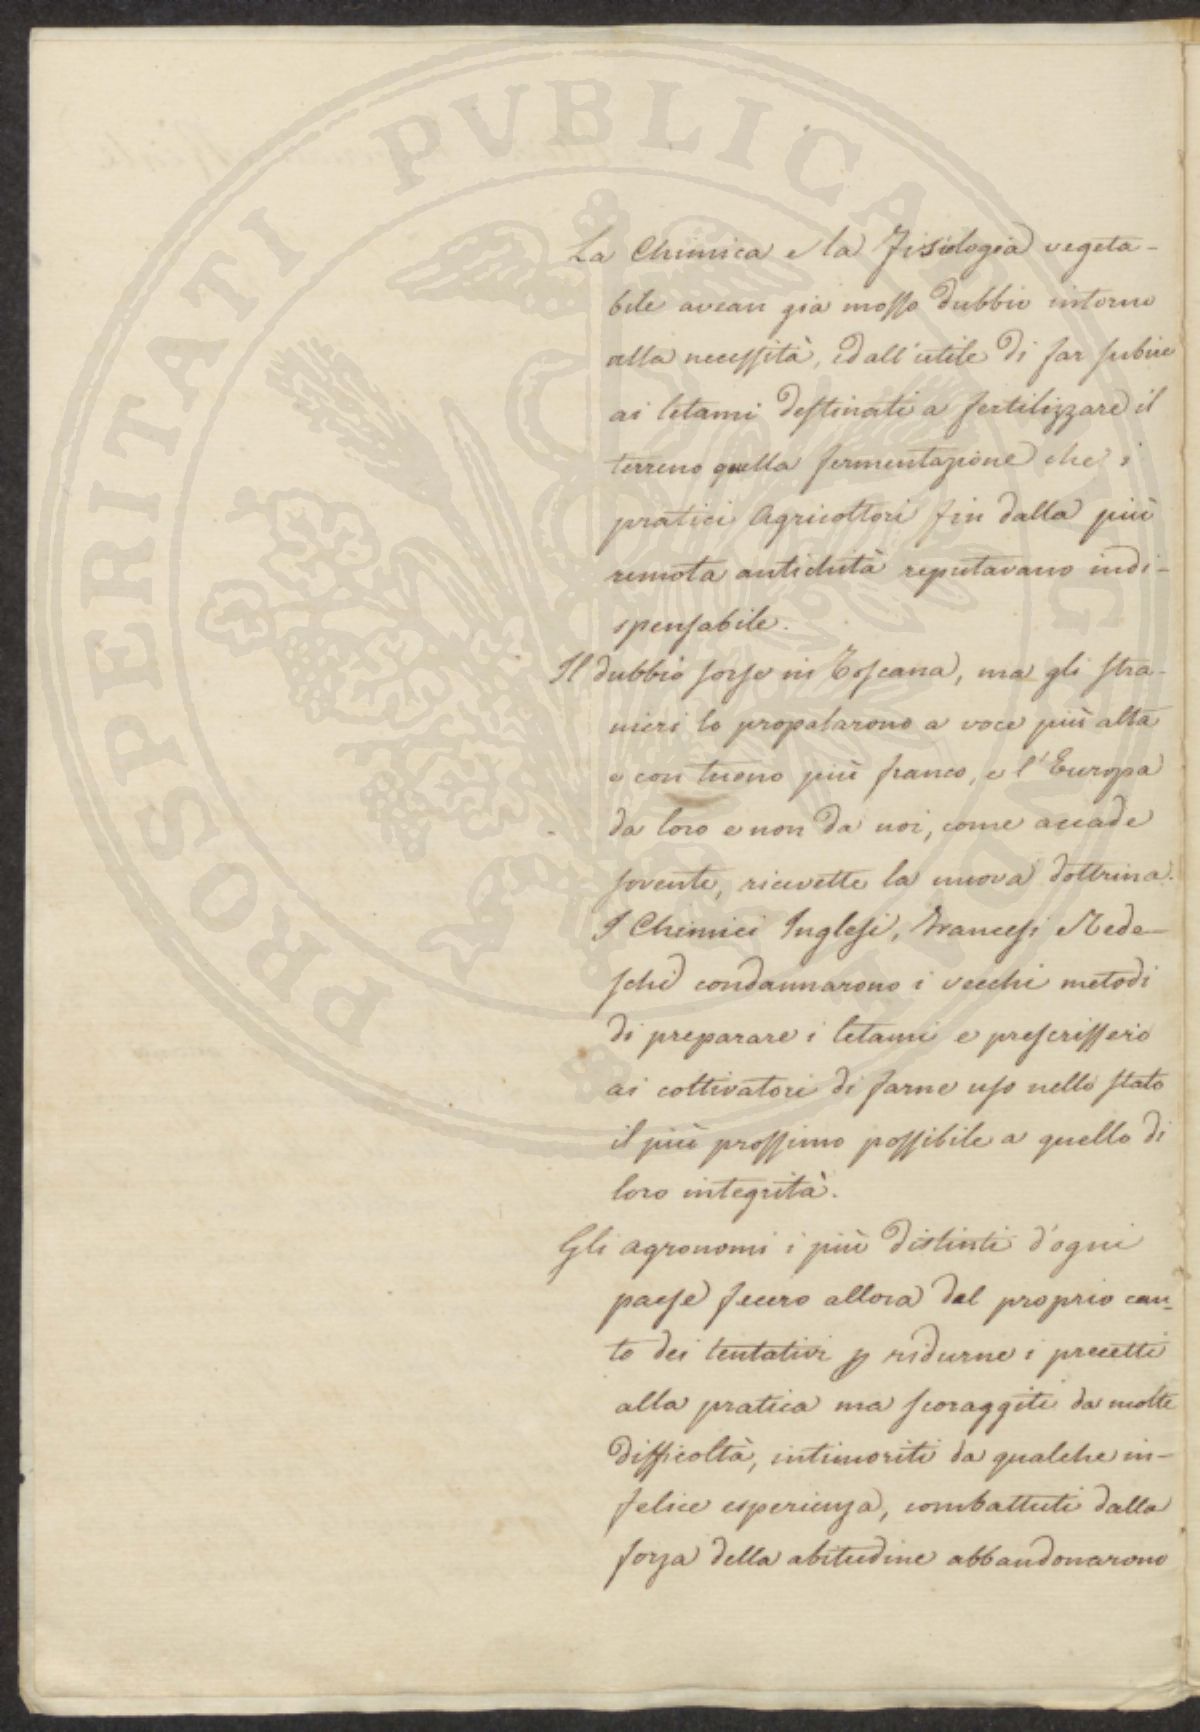 PROSPERITATI PUBLICAE AUGENDAE
La Chimica e la Fisiologia vegeta-
bile avean già mosso dubbio intorno
alla necessità, e dall'utile di far subire
ai letami destinati a fertilizzare il
terreno quella fermentazione che i
pratici Agricoltori fin dalla più
remota antichità reputavano indi-
spensabile.
Il dubbio sorse in Toscana, ma gli stra-
nieri lo propalarono a voce più alta
e con tuono più franco, e l'Europa
da loro e non da noi, come accade
sovente, ricevette la nuova dottrina.
I Chimici Inglesi, Francesi e Tede-
schi condannarono i vecchi metodi
di preparare i letami e prescrissero
ai coltivatori di farne uso nello stato
il più prossimo possibile a quello di
loro integrità.
Gli agronomi i più distinti d'ogni
paese fecero allora dal proprio can-
to dei tentativi p ridurne i precetti
alla pratica ma scoraggiti da molte
difficoltà, intimoriti da qualche in-
felice esperienza, combattuti dalla
forza della abitudine abbandonarono